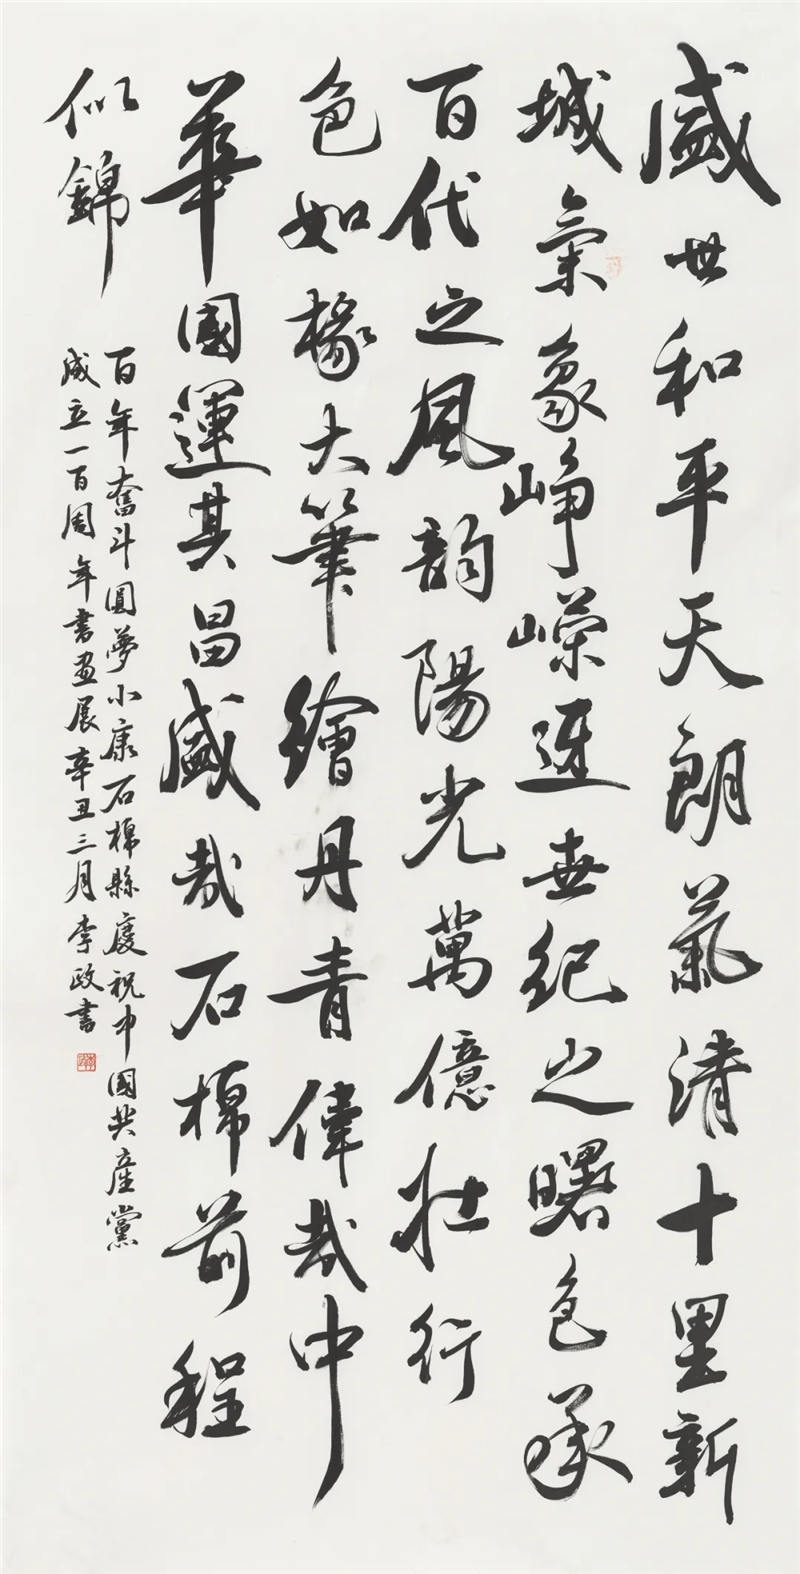 盛世和平天朗氣清十里新
城氣象崢嶸迓世紀之曙色承
百代之風韵陽光萬億壯行
色如椽大筆繪丹青偉哉中
華國運其昌盛哉石棉前程
似錦
百年奮斗圓夢小康石棉縣慶祝中國共產黨
成立一百周年書畫展辛丑三月李政書